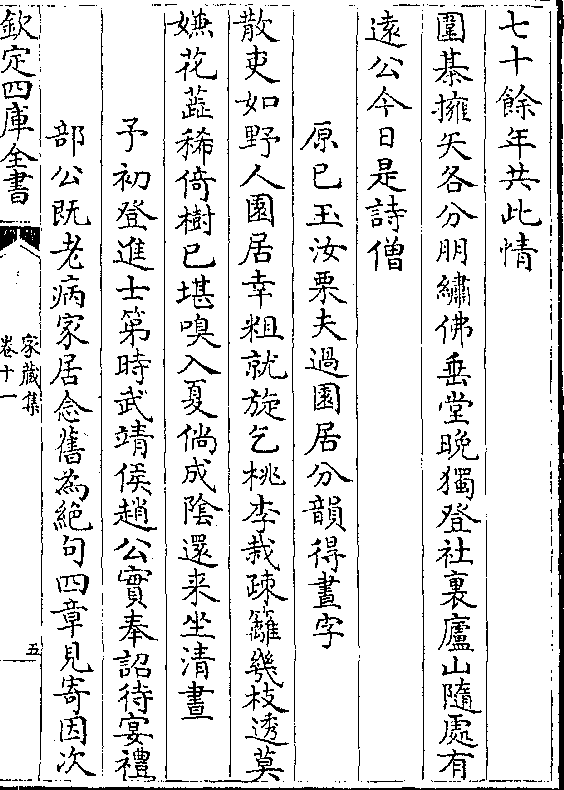 七十餘年共此情
圍棊擁矢各分朋繡佛垂堂晚獨登社裏廬山隨處有
遠公今日是詩僧
原已玉汝栗夫過園居分韻得晝字
散吏如野人園居幸粗就旋乞桃李栽疎籬幾枝透莫
嫌花蕋稀倚樹已堪嗅入夏倘成陰還来坐清晝
予初登進士第時武靖侯趙公實奉詔待宴禮
部公既老病家居念舊為絶句四章見寄因次
欽定四庫全書
家藏集
卷十一
五